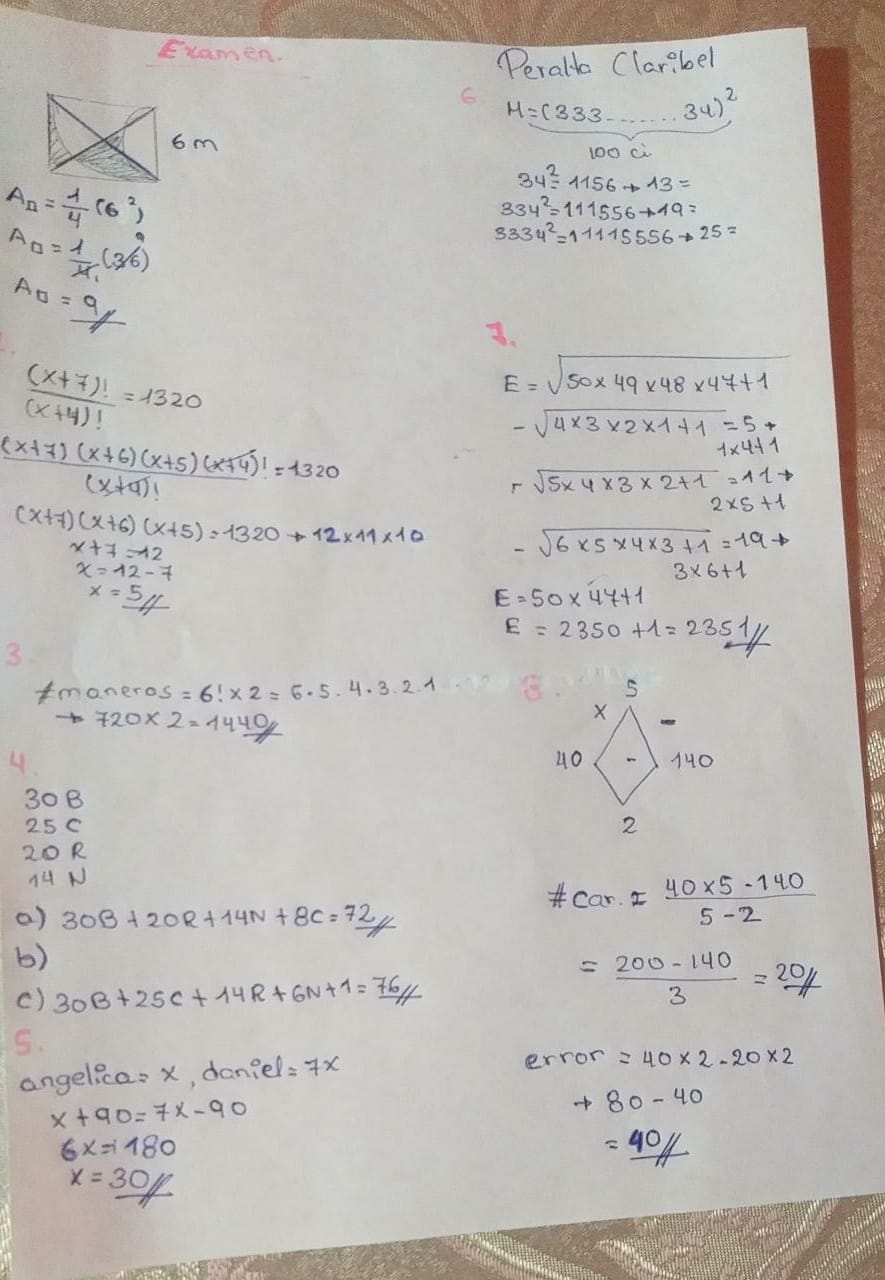 Examen.
6 m
A□ = 1/4 (6²)
A□ = 1/4 (36)
9
1
A□ = 9
(x+7)! / (x+4)! = 1320
(x+7)(x+6)(x+5)(x+4)! / (x+4)! = 1320
(x+7)(x+6)(x+5) = 1320 → 12x11x10
x+7=12
x=12-7
x = 5
3.
#maneros = 6! x 2 = 6.5.4.3.2.1
→ 720x2 = 1440
4.
30 B
25 C
20 R
14 N
a) 30B + 20R + 14N + 8C = 72
b)
c) 30B + 25C + 14R + 6N + 1 = 76
5.
angelica = x, daniel = 7x
x + 90 = 7x - 90
6x = 180
x = 30
Peralta Claribel
6
M = (333.......34)²
100 ci
34² = 1156 → 13 =
334² = 111556 → 19 =
3334² = 11115556 → 25 =
7.
E = √50x49x48x47+1
- √4x3x2x1+1 = 5 →
1x4+1
- √5x4x3x2+1 = 11 →
2x5+1
- √6x5x4x3+1 = 19 →
3x6+1
E = 50x47+1
E = 2350 + 1 = 2351
8.
5
x -
40 - 140
2
#Car. = 40x5-140 / 5-2
= 200-140 / 3 = 20
error = 40x2-20x2
→ 80 - 40
= 40